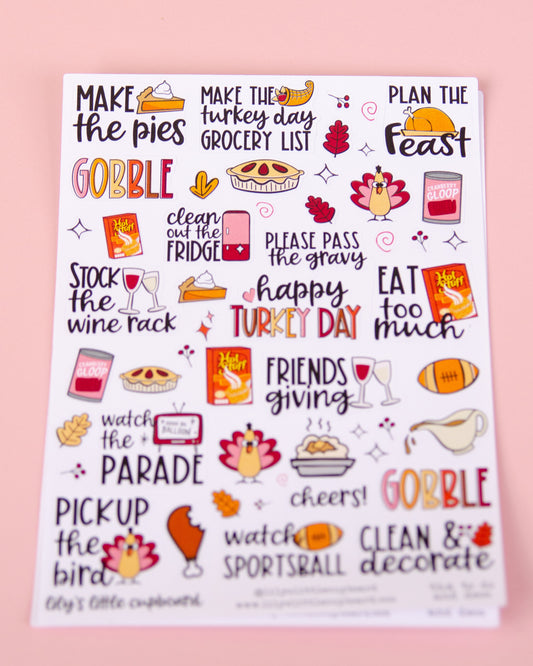 MAKE
the pies
MAKE THE
turkey day
GROCERY LIST
PLAN THE
Feast
GOBBLE
CRANBERRY
GLOOP
Hot
Stuff
clean
out the
FRIDGE
PLEASE PASS
the gravy
STOCK
the
wine rack
happy
TURKEY DAY
EAT
too
much
Hot
Stuff
CRANBERRY
GLOOP
Hot
Stuff
FRIENDS
giving
watch
the
PARADE
BALLOON
cheers!
GOBBLE
PICKUP
the
bird
watch
SPORTSBALL
CLEAN &
decorate
lily's little cupboard
@lilyslittlecupboard
www.lilyslittlecupboard.com